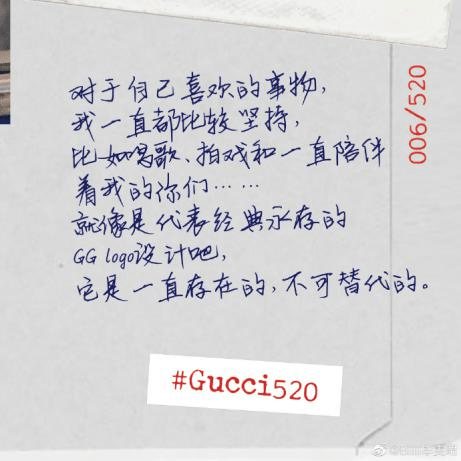 对于自己喜欢的事物,
我一直都比较坚持,
比如唱歌、拍戏和一直陪伴
着我的你们……
就像是代表经典永存的
GG logo设计吧,
它是一直存在的,不可替代的。
006/520
#Gucci520